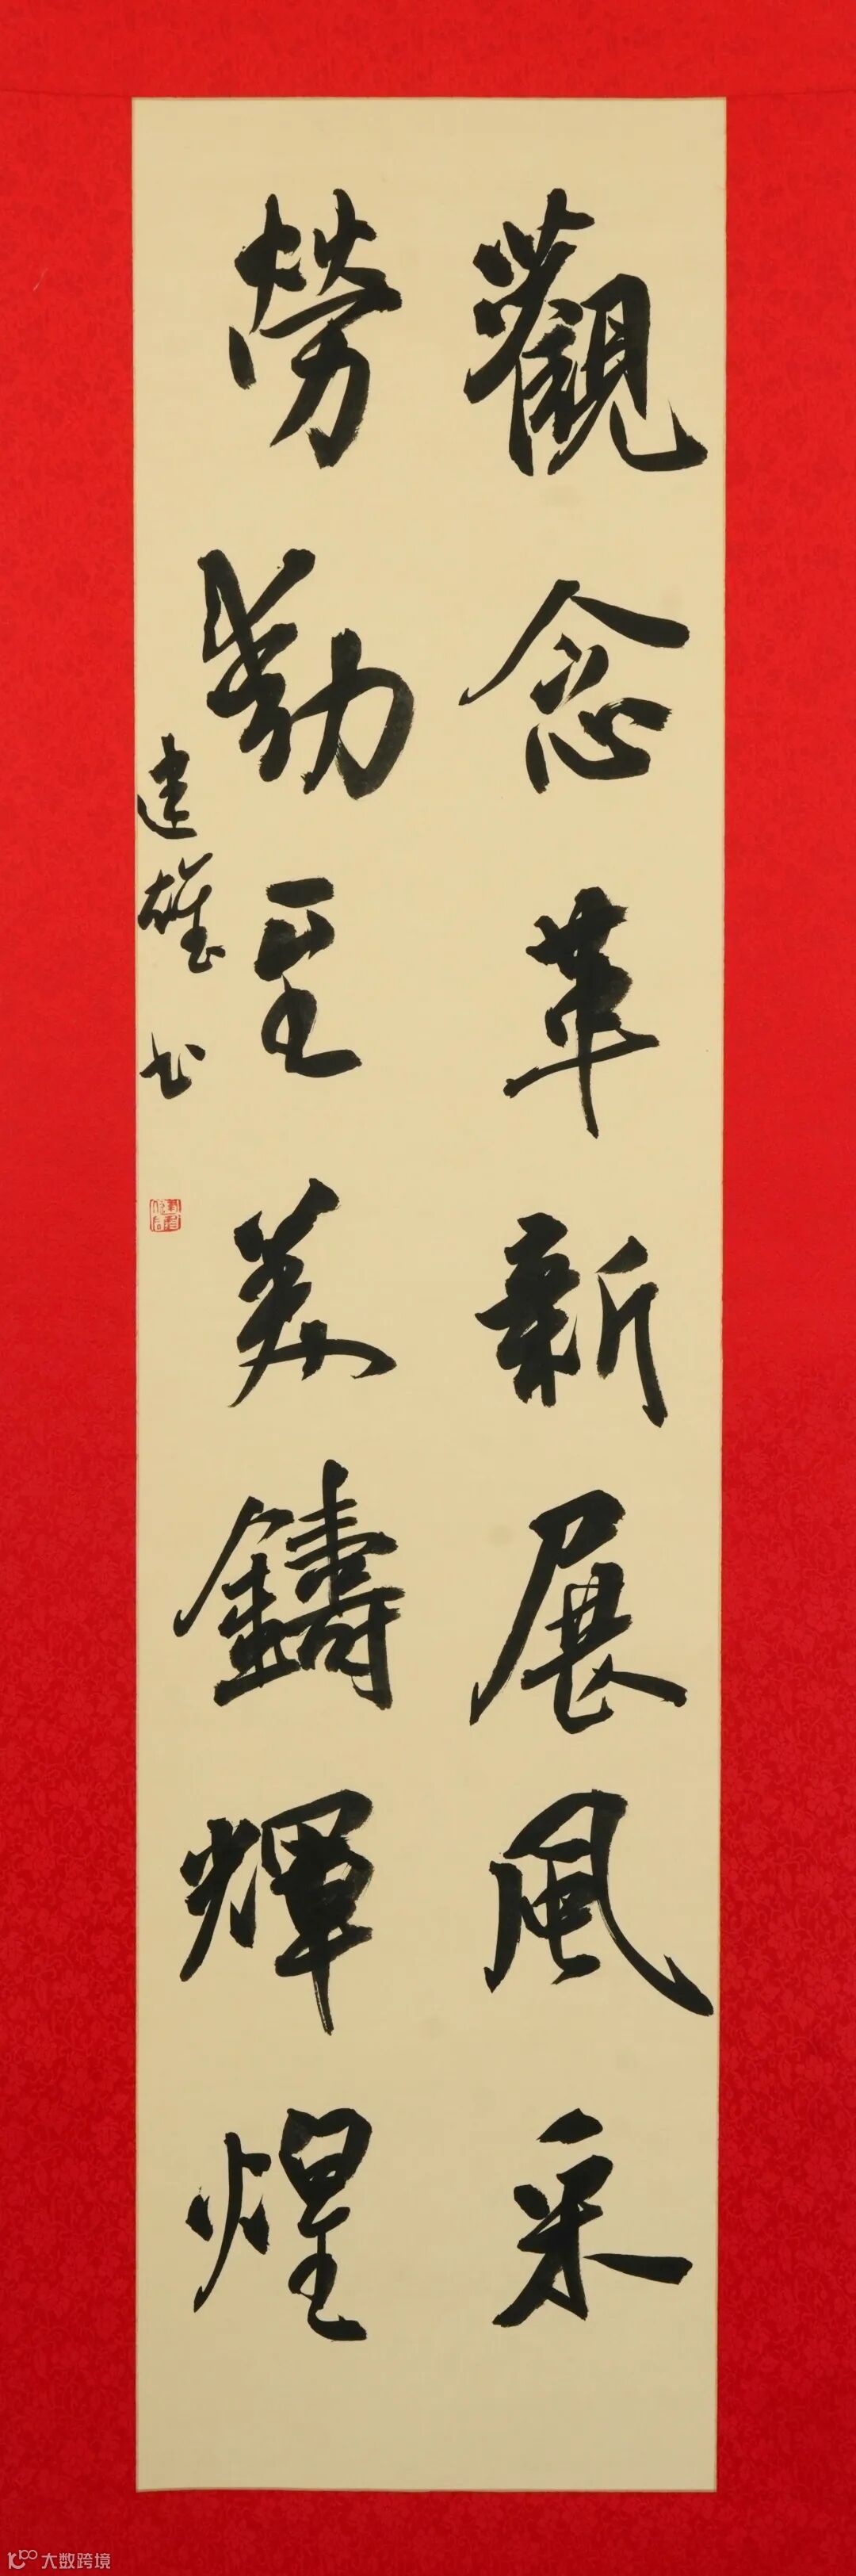 觀念革新展風采
勞動至美鑄輝煌
建雄书
大数跨境